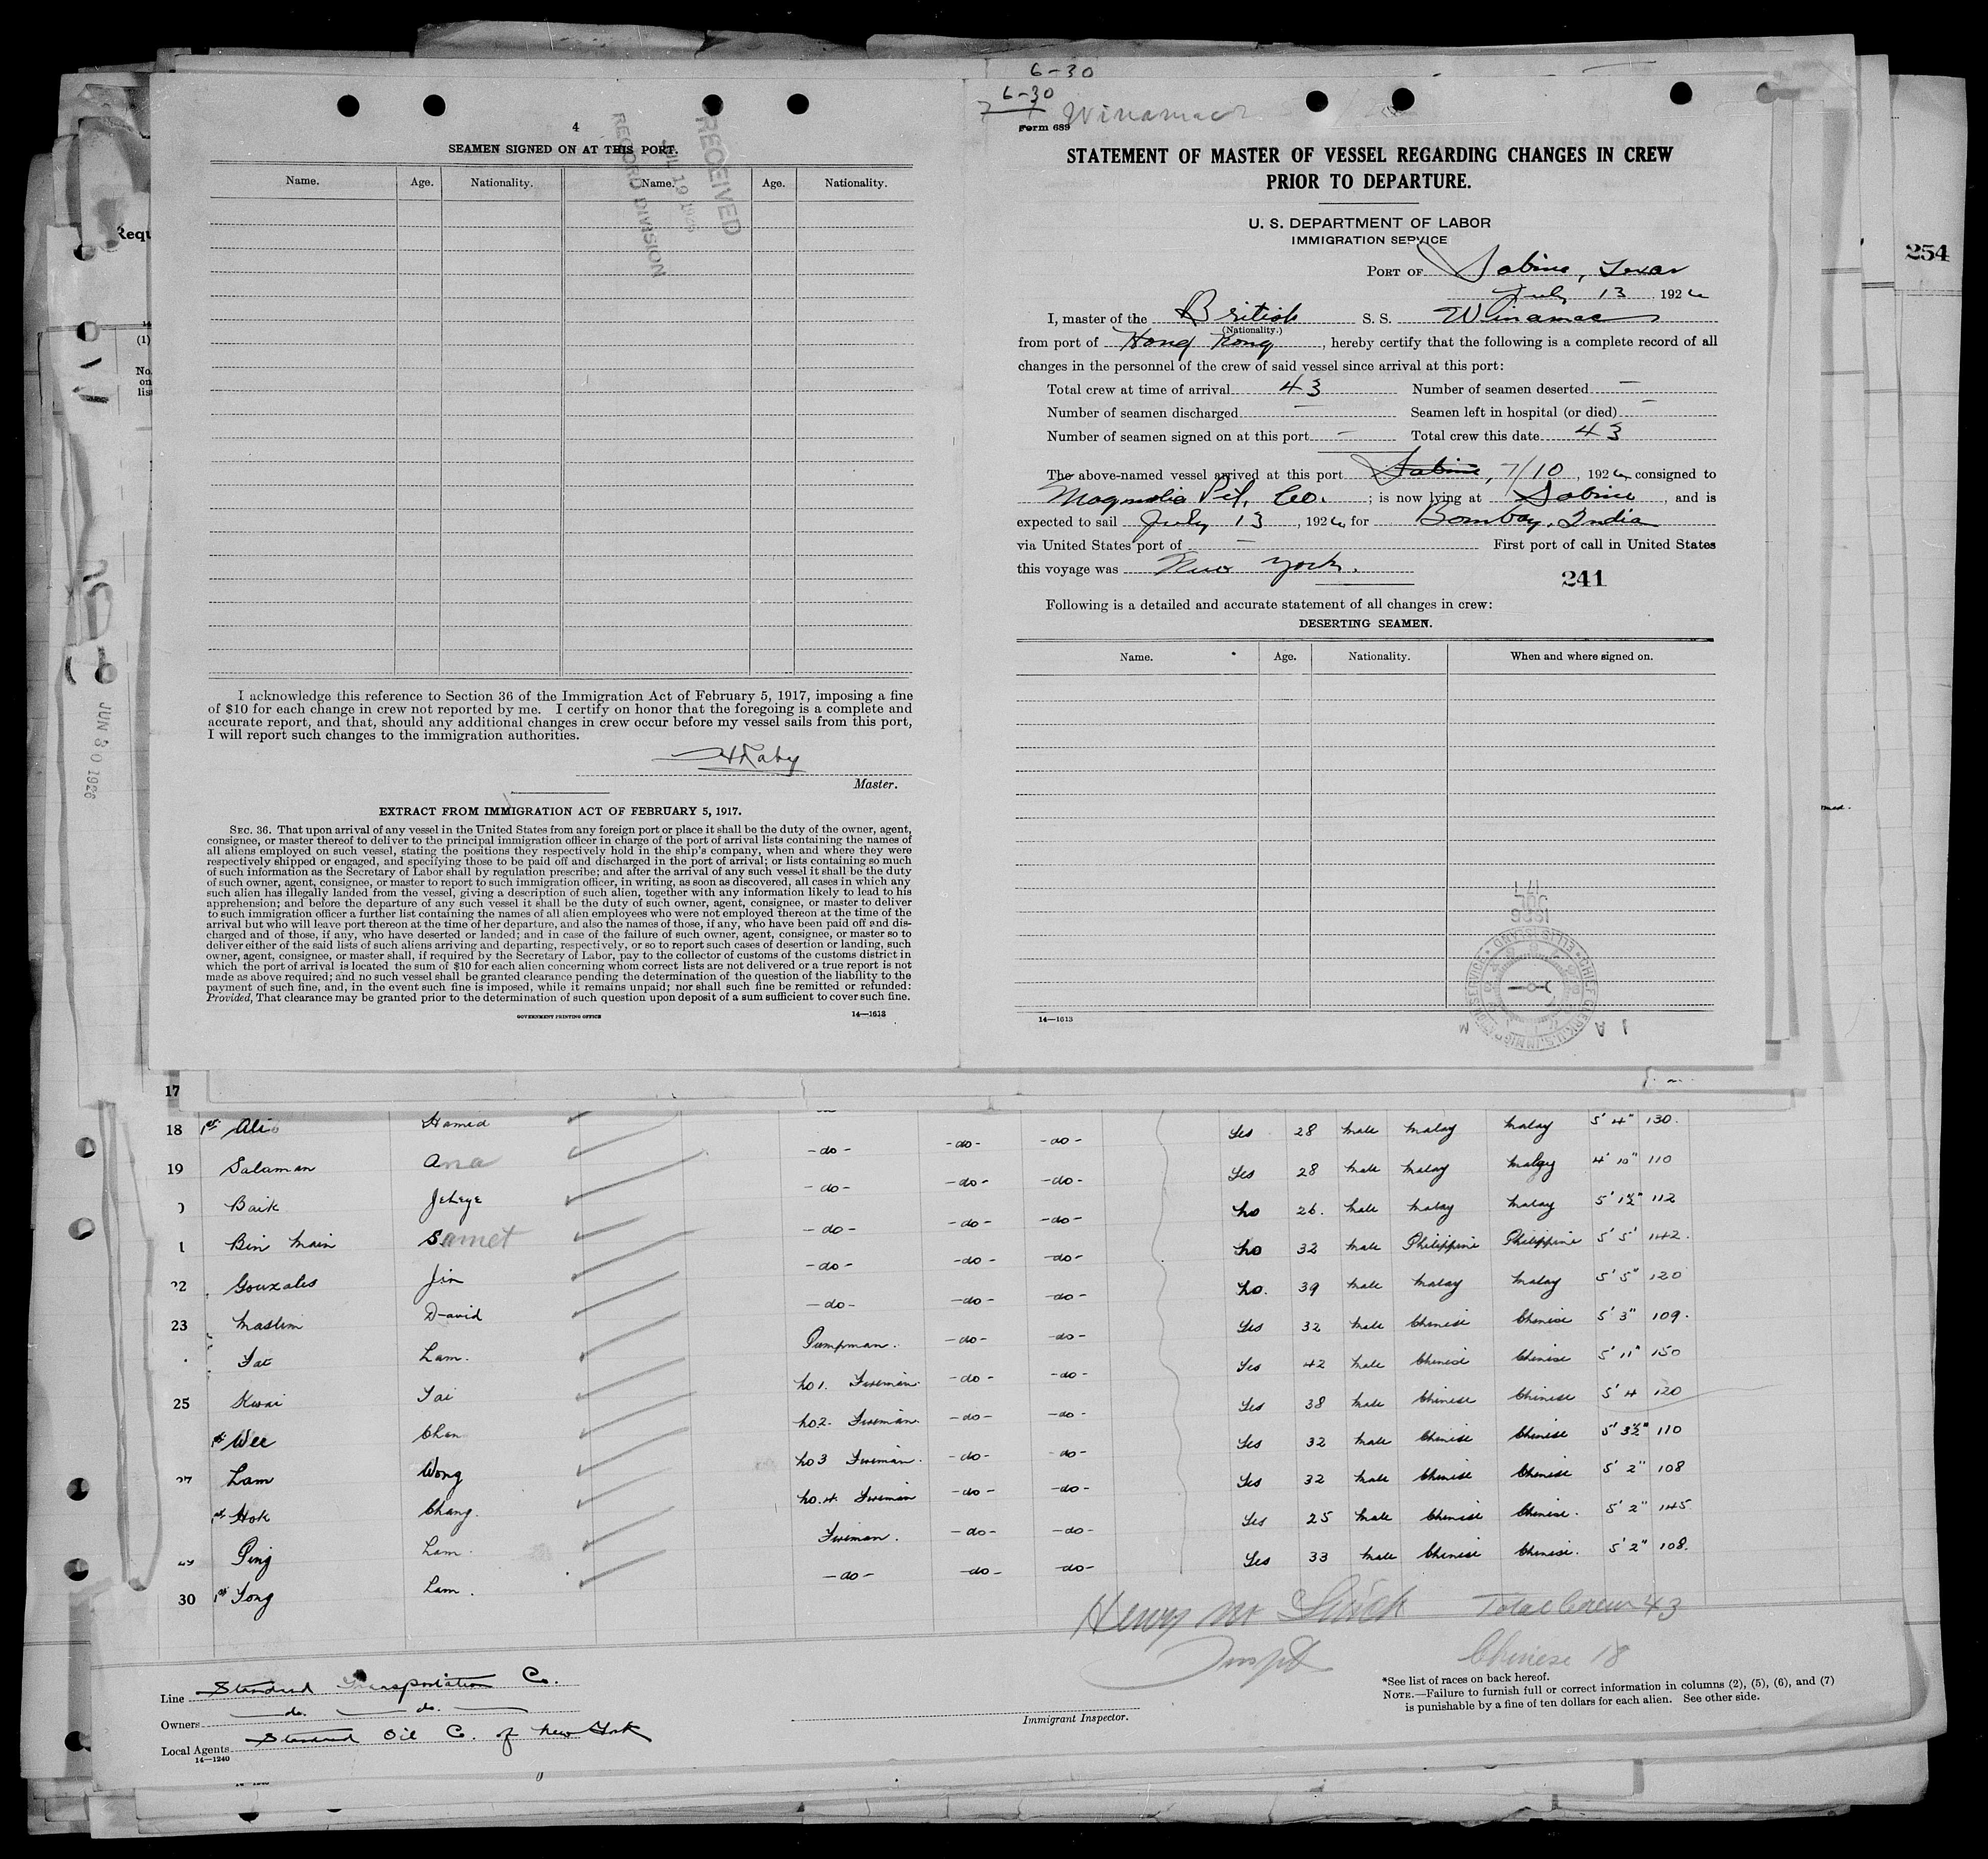 4
SEAMEN SIGNED ON AT THIS PORT.
Name. Age. Nationality. Name. Age. Nationality.
RECEIVED
JUL 19 1926
RECORD DIVISION
I acknowledge this reference to Section 36 of the Immigration Act of February 5, 1917, imposing a fine
of $10 for each change in crew not reported by me. I certify on honor that the foregoing is a complete and
accurate report, and that, should any additional changes in crew occur before my vessel sails from this port,
I will report such changes to the immigration authorities.
Master.
EXTRACT FROM IMMIGRATION ACT OF FEBRUARY 5, 1917.
SEC. 36. That upon arrival of any vessel in the United States from any foreign port or place it shall be the duty of the owner, agent,
consignee, or master thereof to deliver to the principal immigration officer in charge of the port of arrival lists containing the names of
all aliens employed on such vessel, stating the positions they respectively hold in the ship's company, when and where they were
respectively shipped or engaged, and specifying those to be paid off and discharged in the port of arrival; or lists containing so much
of such information as the Secretary of Labor shall by regulation prescribe; and after the arrival of any such vessel it shall be the duty
of such owner, agent, consignee, or master to report to such immigration officer, in writing, as soon as discovered, all cases in which any
such alien has illegally landed from the vessel, giving a description of such alien, together with any information likely to lead to his
apprehension; and before the departure of any such vessel it shall be the duty of such owner, agent, consignee, or master to deliver
to such immigration officer a further list containing the names of all alien employees who were not employed thereon at the time of the
arrival but who will leave port thereon at the time of her departure, and also the names of those, if any, who have been paid off and dis-
charged and of those, if any, who have deserted or landed; and in case of the failure of such owner, agent, consignee, or master so to
deliver either of the said lists of such aliens arriving and departing, respectively, or so to report such cases of desertion or landing, such
owner, agent, consignee, or master shall, if required by the Secretary of Labor, pay to the collector of customs of the customs district in
which the port of arrival is located the sum of $10 for each alien concerning whom correct lists are not delivered or a true report is not
made as above required; and no such vessel shall be granted clearance pending the determination of the question of the liability to the
payment of such fine, and, in the event such fine is imposed, while it remains unpaid; nor shall such fine be remitted or refunded:
Provided, That clearance may be granted prior to the determination of such question upon deposit of a sum sufficient to cover such fine.
GOVERNMENT PRINTING OFFICE 14—1613
6-30
6-30
Winamac
Form 689
STATEMENT OF MASTER OF VESSEL REGARDING CHANGES IN CREW
PRIOR TO DEPARTURE.
U. S. DEPARTMENT OF LABOR
IMMIGRATION SERVICE
PORT OF Sabine, Texas
July 13, 1926
I, master of the British S. S. Winamac
(Nationality.)
from port of Hong Kong, hereby certify that the following is a complete record of all
changes in the personnel of the crew of said vessel since arrival at this port:
Total crew at time of arrival 43 Number of seamen deserted –
Number of seamen discharged – Seamen left in hospital (or died) –
Number of seamen signed on at this port – Total crew this date 43
The above-named vessel arrived at this port Sabine, 7/10, 1926, consigned to
Magnolia Pet. Co.; is now lying at Sabine, and is
expected to sail July 13, 1926, for Bombay, India
via United States port of – First port of call in United States
this voyage was New York.
241
Following is a detailed and accurate statement of all changes in crew:
DESERTING SEAMEN.
Name. Age. Nationality. When and where signed on.
1926
JUL
17
14—1613
254
Requ
(1)
No.
on
list
JUN 30 1926
17
18 Ali Hamid -do- -do- -do- Yes 28 Male Malay Malay 5' 4" 130.
19 Salaman Ana -do- -do- -do- Yes 28 Male Malay Malay 4' 10" 110
Baik Jeheye -do- -do- -do- No 26. Male Malay Malay 5' 1½" 112
1 Bin Main Samet -do- -do- -do- No 32 Male Philippine Philippine 5' 5' 142.
22 Gouzales Jin -do- -do- -do- No. 39 Male Malay Malay 5' 5" 120
23 Maslim David Pumpman. -do- -do- Yes 32 Male Chinese Chinese 5' 3" 109.
Lam. No 1. Fireman. -do- -do- Yes 42 Male Chinese Chinese 5' 11" 150
25 Kwai No 2. Fireman. -do- -do- Yes 38 Male Chinese Chinese 5' 4 120
Wee Chan No 3 Fireman. -do- -do- Yes 32 Male Chinese Chinese 5' 3½" 110
27 Lam Wong No. 4. Fireman -do- -do- Yes 32 Male Chinese Chinese 5' 2" 108
Hok Chang. Fireman. -do- -do- Yes 25 Male Chinese Chinese. 5' 2" 145.
29 Ping Lam. -do- -do- -do- Yes 33 Male Chinese Chinese. 5' 2" 108.
30 Lam.
Total Crew 43
Chinese 18
Line Standard Transportation Co.
Owners do. do.
Local Agents Standard Oil Co. of New York
14—1240
Immigrant Inspector.
*See list of races on back hereof.
NOTE.—Failure to furnish full or correct information in columns (2), (5), (6), and (7)
is punishable by a fine of ten dollars for each alien. See other side.